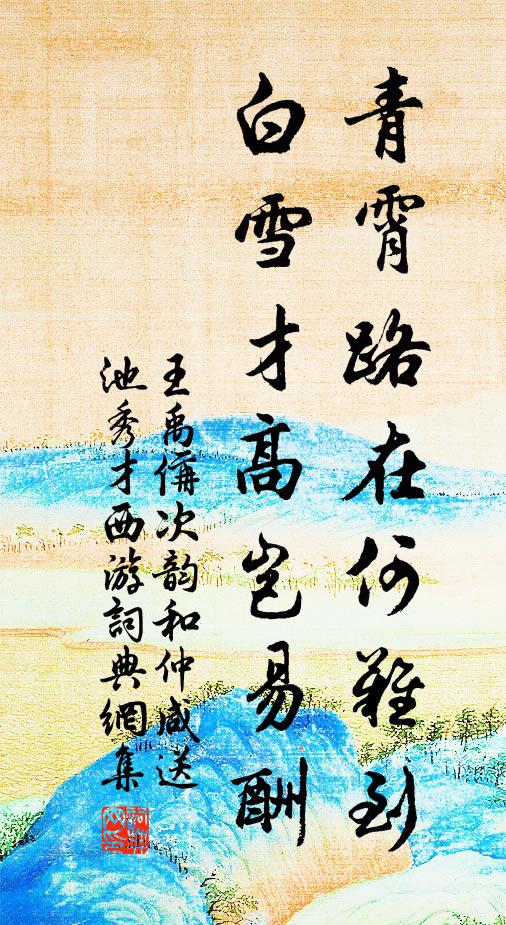 青霄路在何難到
白雪才高豈易酬
王禹偁次韵和仲咸送
池秀才西游詞典網集